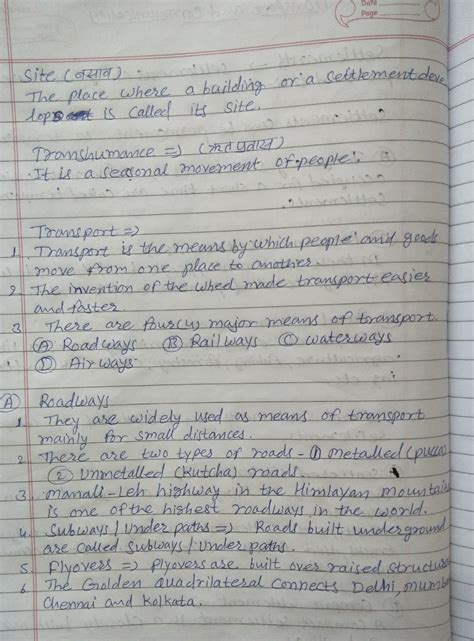 Date
Page
Site (बसाव)
The place where a building or a settlement deve
lops is called its site.
Transhumance => (ऋतु प्रवास)
It is a seasonal movement of people.
Transport =>
1. Transport is the means by which people and goods
move from one place to another.
2. The invention of the wheel made transport easier
and faster.
3. There are four (4) major means of transport.
(A) Roadways (B) Railways (C) waterways
(D) Airways
(A) Roadways
1. They are widely used as means of transport
mainly for small distances.
2. There are two types of roads - (1) metalled (pucca)
(2) Unmetalled (Kutcha) roads.
3. manali-Leh highway in the Himlayan mountain
is one of the highest roadways in the world.
4. Subways / Under paths => Roads built underground
are called subways / Under paths.
5. Flyovers => Flyovers are built over raised structure
6. The Golden quadrilateral connects Delhi, mumb
Chennai and Kolkata.